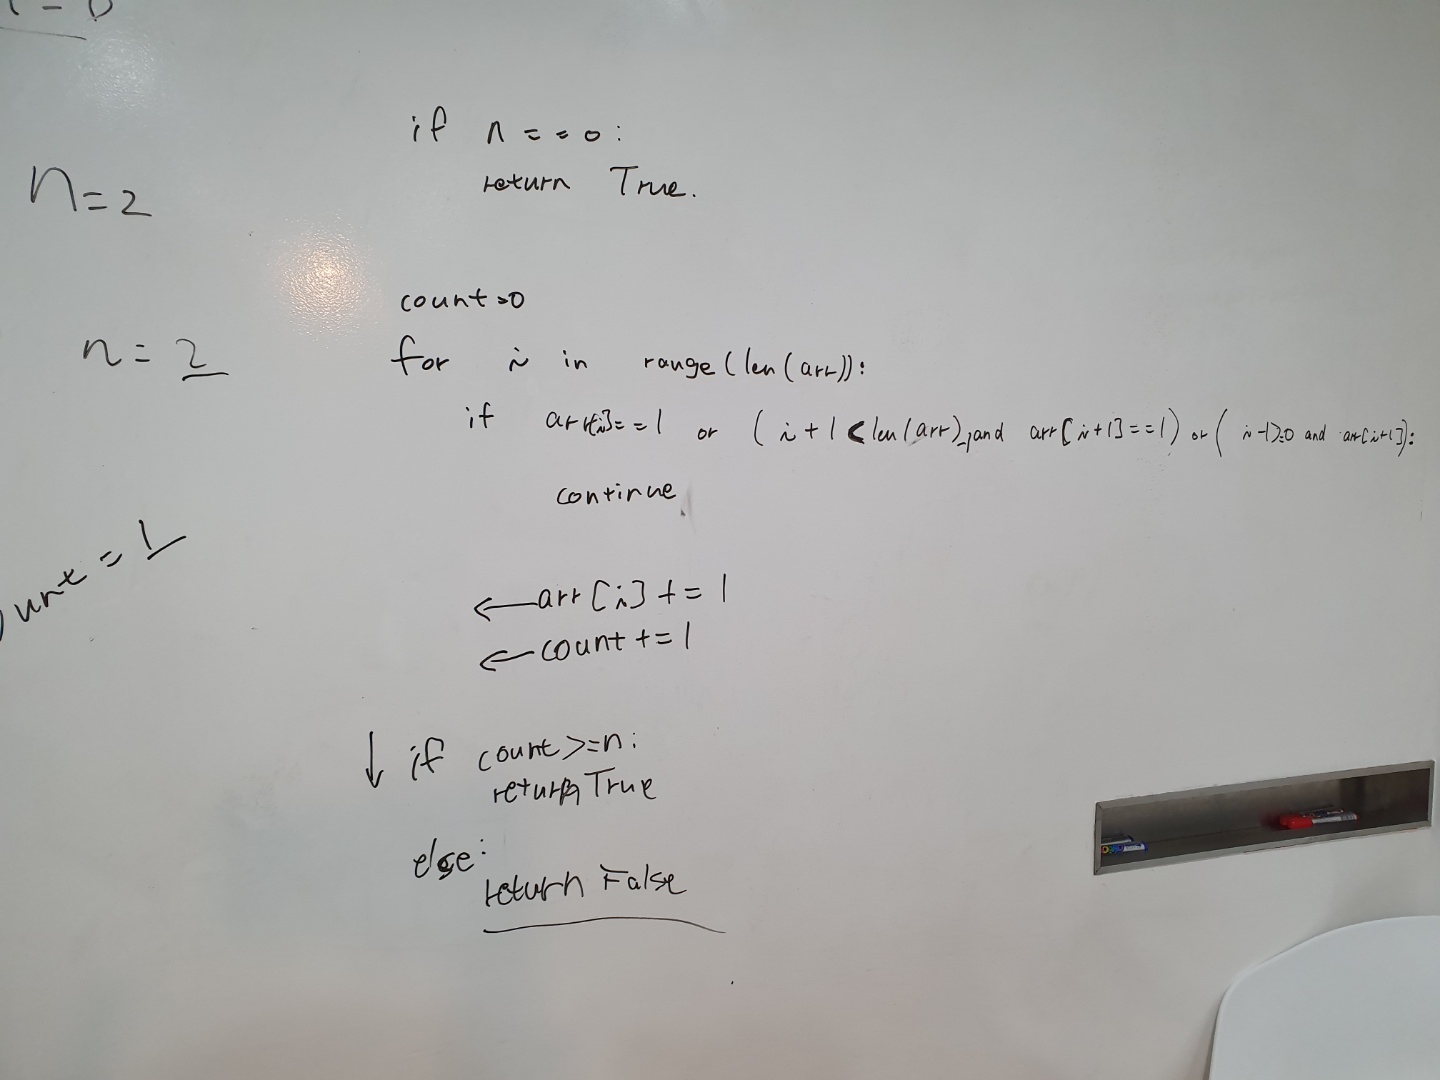 if n==0:
return True.
n=2
count=0
for i in range(len(arr)):
n=2
if arr[i]==1 or (i+1<len(arr) and arr[i+1]==1) or (i-1>=0 and arr[i+1]):
continue
count = 1
arr[i]+=1
count+=1
if count>=n:
return True
else:
return False